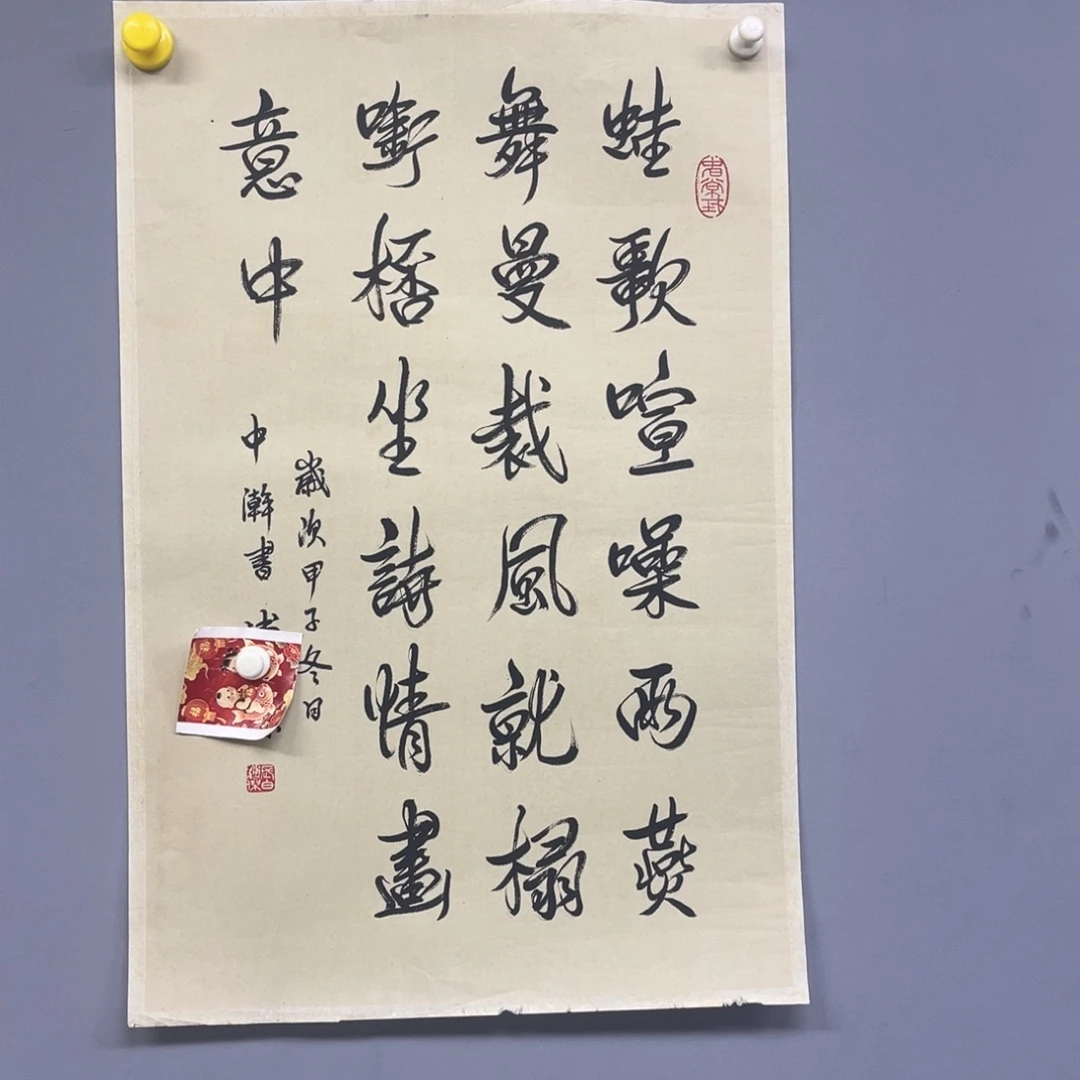 蛙歌喧噪雨燕
舞曼裁風就榻
啣桮坐詩情畫
意中
歲次甲子冬日
中瀚書